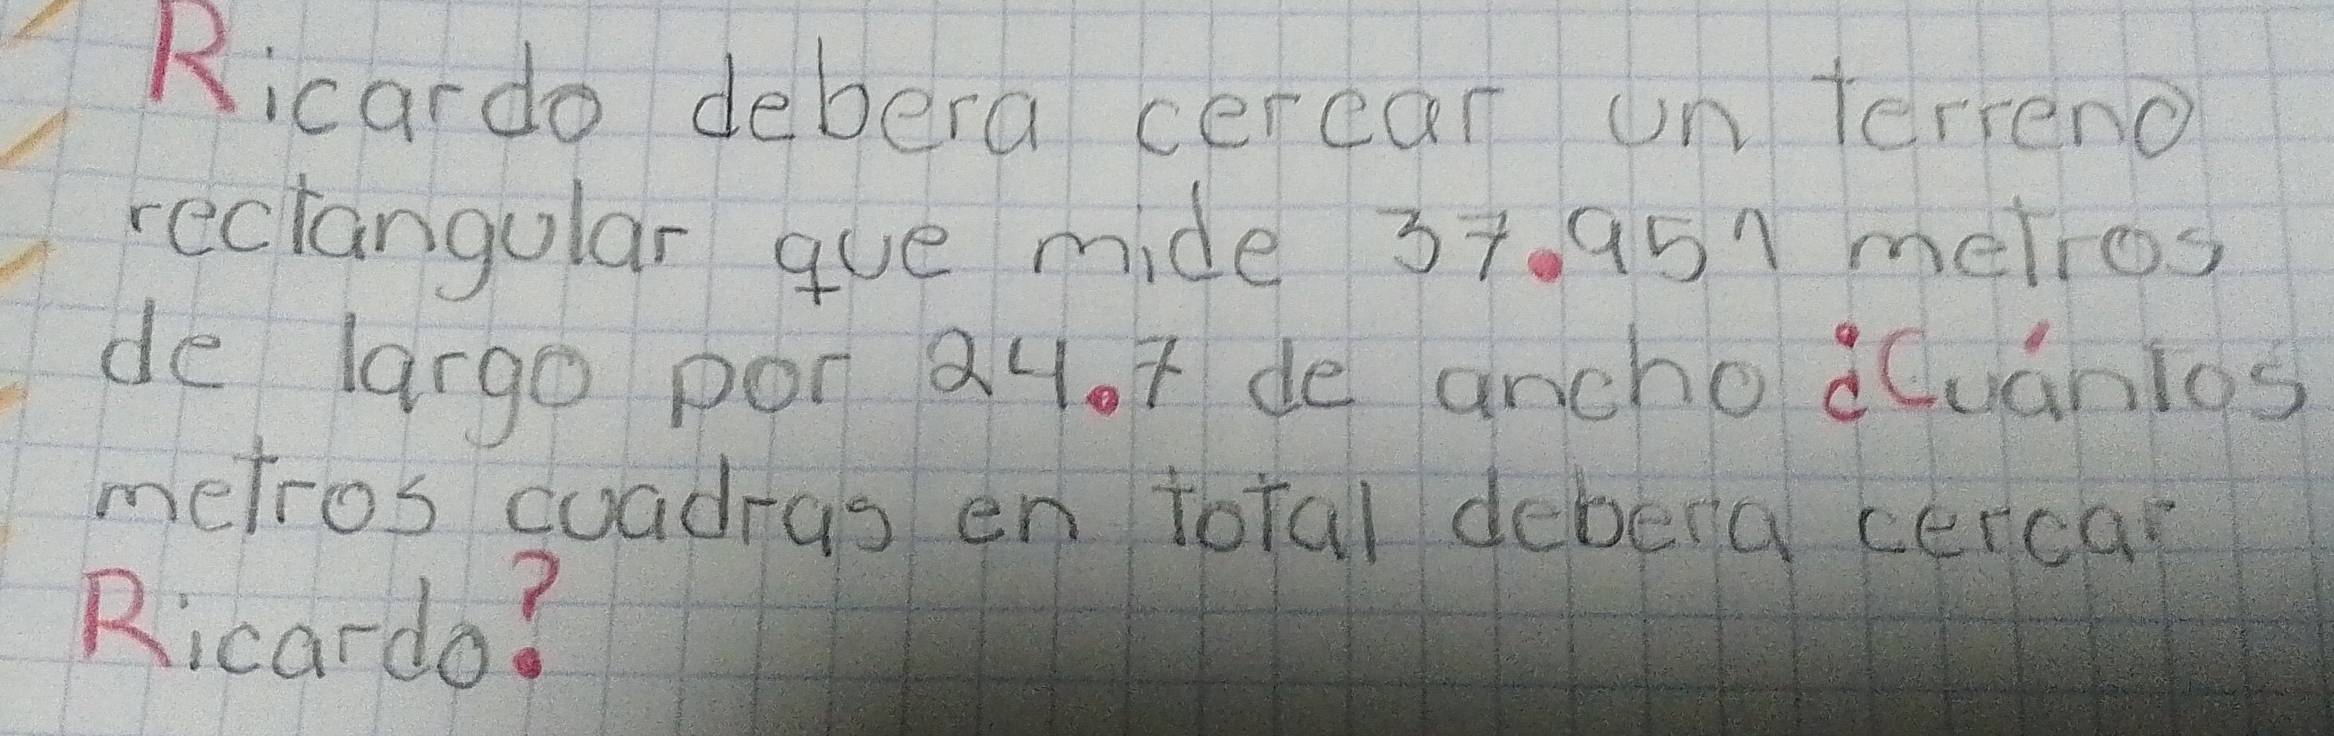 Ricardo debera cercar un terreno
rectangular que mide 37.951 metros
de largo por 24.7 de ancho ¿Cuántos
metros cuadras en total debera cercar
Ricardo?